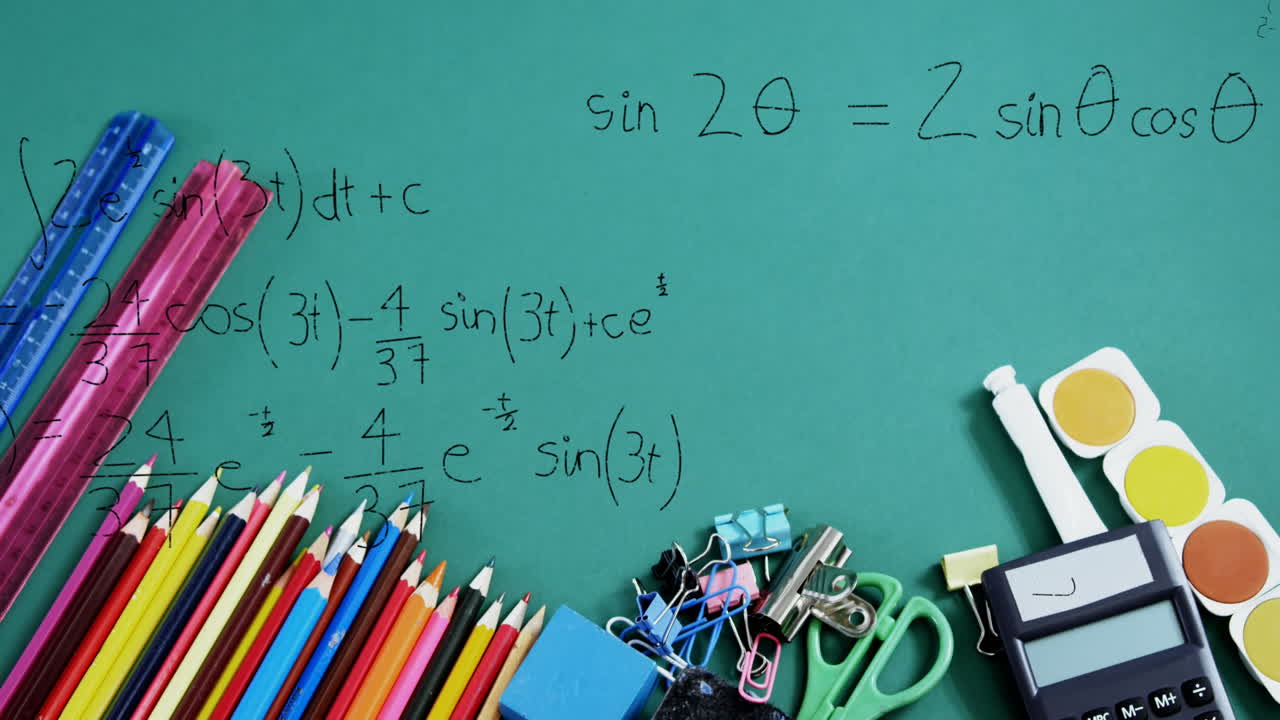 sin 2θ = 2 sinθ cosθ
∫2e^½ sin(3t)dt+c
= -24/37 cos(3t) - 4/37 sin(3t)+ce^t/2
) = 24/37 e^-t/2 - 4/37 e^-t/2 sin(3t)
M- M+ ÷